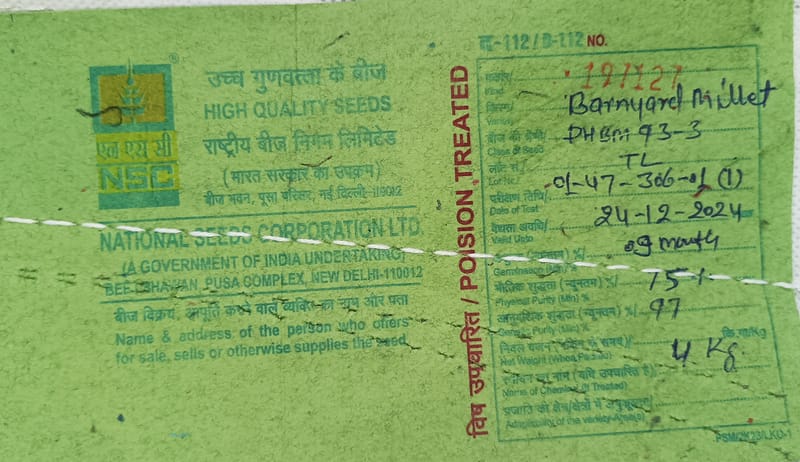 ®
उच्च गुणवत्ता के बीज
HIGH QUALITY SEEDS
राष्ट्रीय बीज निगम लिमिटेड
(भारत सरकार का उपक्रम)
बीज भवन, पूसा परिसर, नई दिल्ली-110012
एन एस सी
NSC
NATIONAL SEEDS CORPORATION LTD.
(A GOVERNMENT OF INDIA UNDERTAKING)
BEEJ BHAWAN, PUSA COMPLEX, NEW DELHI-110012
बीज विक्रय, आपूर्ति करने वाले व्यक्ति का नाम और पता
Name & address of the person who offers
for sale, sells or otherwise supplies the seed
विष उपचारित / POISION TREATED
ब-112 / B-112 NO.
Kind
Barnyard Millet
Variety
बीज की श्रेणी
DHBM 93-3
Class of Seed
TL
लॉट सं./
Lot No./
01-47-306-01 (1)
परीक्षण तिथि/
Date of Test
24-12-2024
वैधता अवधि/
Valid Upto
09 month
Germination (Min) %/
75+
भौतिक शुद्धता (न्यूनतम) %/
Physical Purity (Min) %/
97
आनुवंशिक शुद्धता (न्यूनतम) %/
Genetic Purity (Min) %/
कि.ग्रा/Kg
Net Weight (When Packed)
4 Kg.
रसायन का नाम (यदि उपचारित है)
Name of Chemical (If Treated)
प्रजाति की क्षेत्र/क्षेत्रों में अनुकूलता
Adaptability of the variety-Area(s)
PSM/2K23/LKO-1